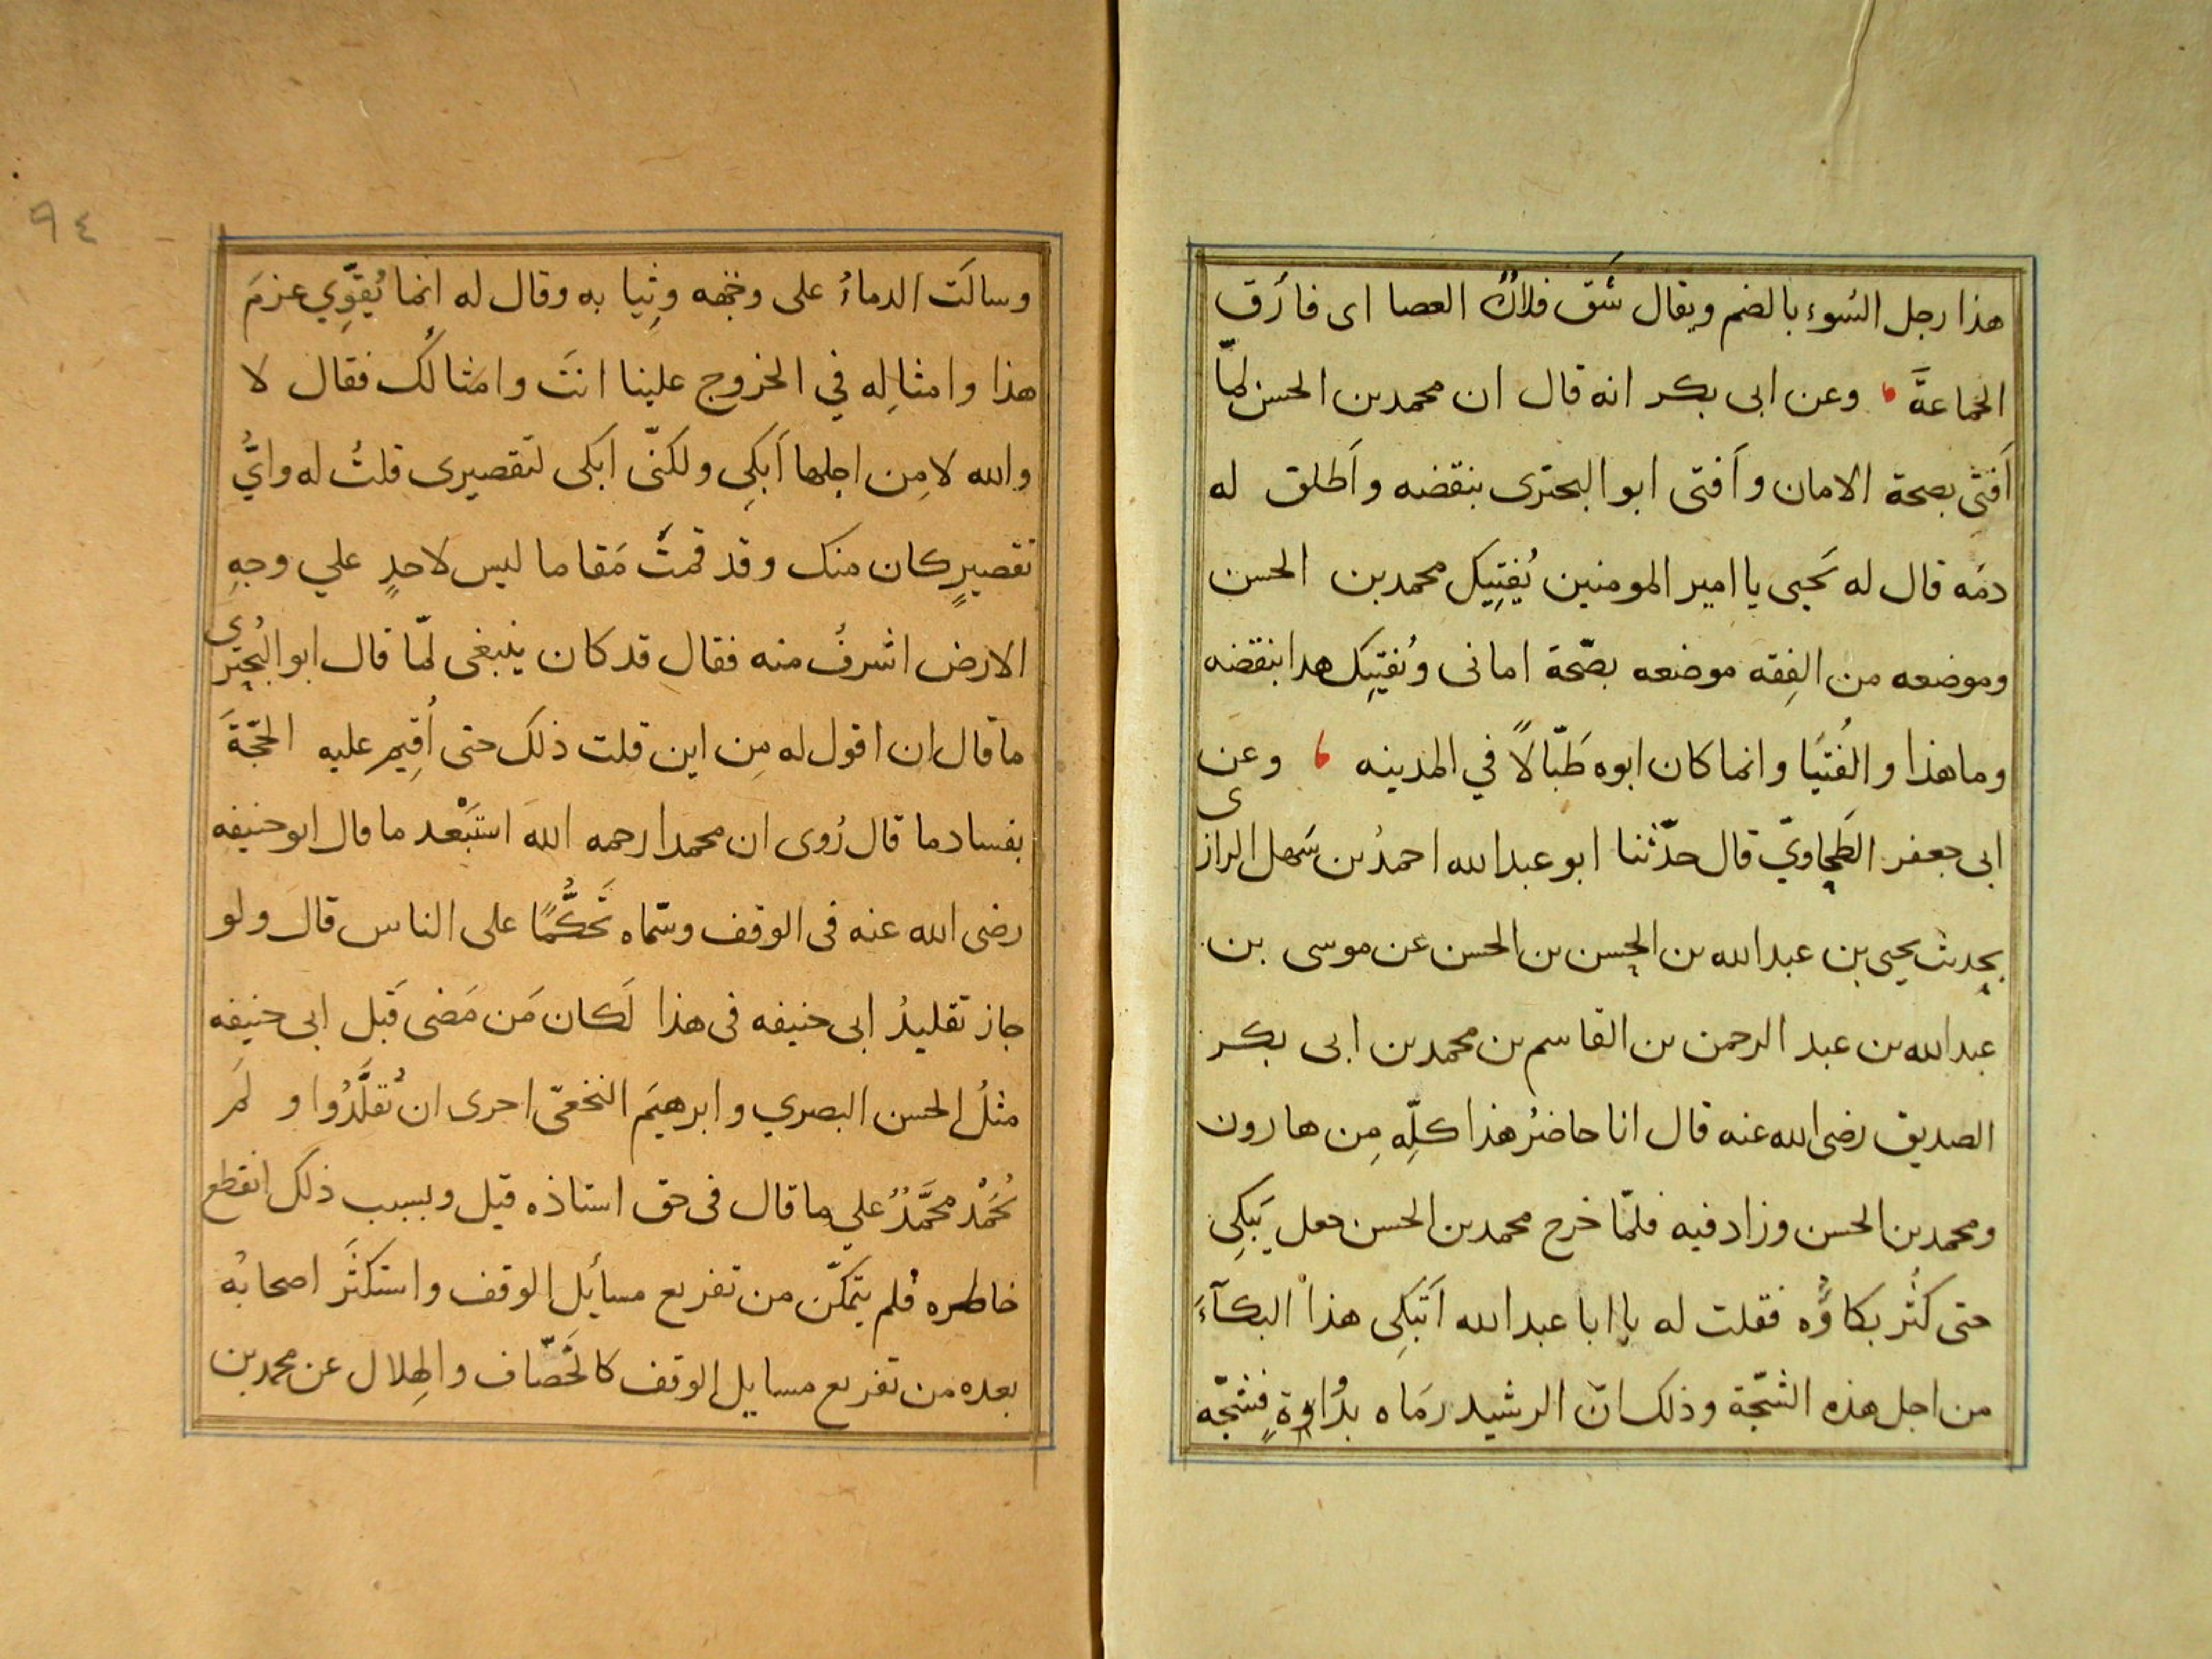 هذا رجل السُوء بالضم ويقال شَق فلانٌ العصا اى فارق
الجماعةَ وعن ابى بكر انه قال ان محمد بن الحسن لمّا
اَفتى بصحة الامان واَفتى ابو البحترى بنقضه واَطلق له
دمَه قال له يَحيى يا امير المومنين يُفتِيكل محمد بن الحسن
وموضعه من الفِقه موضعه بصّحة امانى ويُفتيِك هدا بنقضه
وما هذا والفُتيَا وانما كان ابوه طَبّالاً في المدينه وعن
ابى جعفر الطَحاويّ قال حدّثنا ابو عبد الله احمدُ بن سَهل الرازى
يحدث يحيى بن عبد الله بن الحسن بن الحسن عن موسى بن
عبد الله بن عبد الرحمن بن القاسم بن محمد بن ابى بكر
الصديق رضى الله عنه قال انا حاضرُ هذا كلِّه مِن هارون
ومحمد بن الحسن وزاد فيه فلمّا خرج محمد بن الحسن جعل يَبكِى
حتى كثُر بكاؤُه فقلت له يا ابا عبد الله اَتَبكِى هذا البكآءَ
من اجل هذه الشجّة وذلك انّ الرشيد رمَاه بدُاوةٍ فشجّه
٩٤
وسالَت الدماءُ على وجهه وثِيابه وقال له انما يُقوِّي عزمَ
هذا وامثالِه في الخروج علينا انتَ وامثالُك فقال لا
والله لا مِن اجلها اَبكِى ولكنّى ابكى لتقصيرى قلتُ له وايُّ
تقصيرٍ كان منك وقد قمتَ مَقاما ليس لاحدٍ علي وجهِ
الارض اشرفُ منه فقال قد كان ينبغى لمّا قال ابو البُحترى
ما قال ان اقول له مِن اين قلت ذلك حتى اُقِيم عليه الحجّةَ
بفساد ما قال رُوى ان محمدا رحمه الله استَبْعد ما قال ابو حنيفه
رضى الله عنه فى الوقف وسّماه تَحكُّمًا على الناس قالَ ولو
جاز تقليدُ ابى حنيفه فى هذا لَكان مَن مَضى قَبل ابى حنيفه
مثلُ الحسن البصري وابرهيَم النخعىّ احرى ان يُقلَّدُوا و لَم
يُحَمْد محمَّدٌ علي ما قال فى حق استاذه قيل وبسبب ذلك انقطع
خاطره فلم يتمكّن من تفريع مسأيل الوقف واستكثَر اصحابُه
بعده من تفريع مسايل الوقف كالخَصّاف والهِلال عن محمد بن